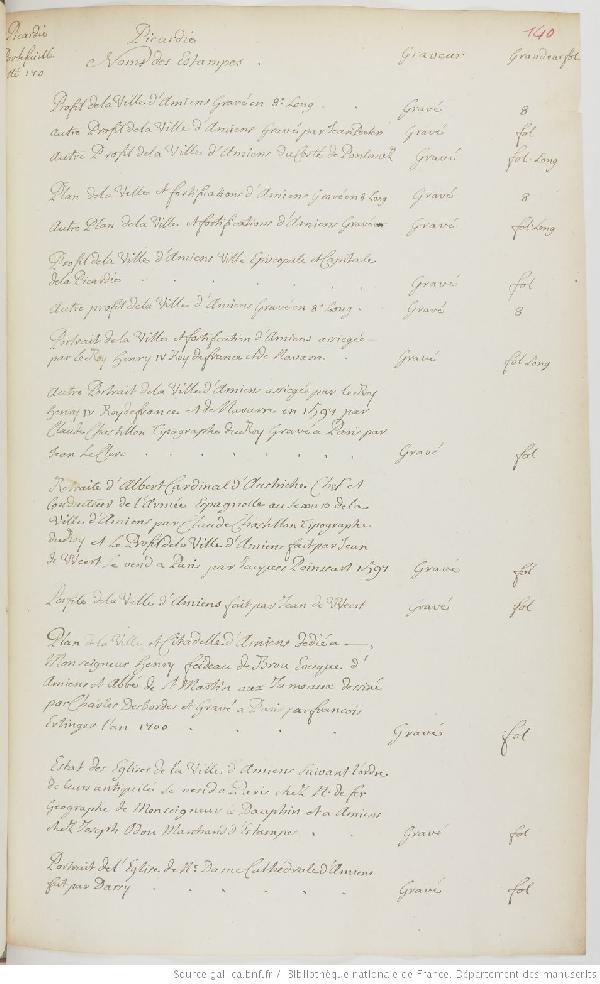 Picardie
Portefeuille
140
Picardie
Noms des Estampes . Graveur Grandeur fol
Profil de la Ville d'Amiens Gravé en 8.º Long . . Gravé 8
autre Profil de la Ville d'Amiens Gravé par Gravé fol
Autre Profil de la Ville d'Amiens du Costé de Gravé fol. Long
Plan de la Ville et fortifications d'Amiens Gravé en 8 Long Gravé 8
Autre Plan de la Ville et fortifications d'Amiens Gravé en Gravé fol Long
Profil de la Ville d'Amiens Ville Episcopale et Capitale
de la Picardie . . . . . Gravé fol
Autre profil de la Ville d'Amiens Gravé en 8º Long . Gravé 8
Portrait de la Ville et fortification d'Amiens assiegée
par le Roy Henry IV Roy de france et de Navarre . Gravé fol Long
Autre Portrait de la Ville d'Amiens assiegé par le Roy
Henry IV Roy de france et de Navarre en 1597 par
Claude Chastillon Typographe du Roy Gravé a Paris par
Jean Le Clerc . . . . . . Gravé fol
Retraite d'Albert Cardinal d'Austriche Chef et
Conducteur de l'Armée Espagnolle au de la
Ville d'Amiens par Claude Chastillon Typographe
du Roy et le Profil de la Ville d'Amiens fait par Jean
de Weert se vend a Paris par Jacques Poinssart 1597 Gravé fol
Porfile de la Ville d'Amiens fait par Jean de Weert Gravé fol
Plan de la Ville et Citadelle d'Amiens dediée a
Monseigneur Henry feideau de Brou Evesque d'
Amiens et Abbé de St Martin aux Jumeaux dessiné
par Charles Desbordes et Gravé a Paris par francois
Ertinger l'an 1700 . . . . Gravé fol
Estat des Eglises de la Ville d'Amiens Suivant l'ordre
de leurs antiquités se vend a Paris chez Mr de fer
Geographe de Monseigneur le Dauphin et a Amiens
chez Joseph Odou Marchand d'Estampes . . Gravé fol
Portrait de l'Eglise de Ne Dame Cathedrale d'Amiens
fait par . . . . . Gravé fol
Source gallica.bnf.fr / Bibliothèque nationale de France. Département des manuscrits